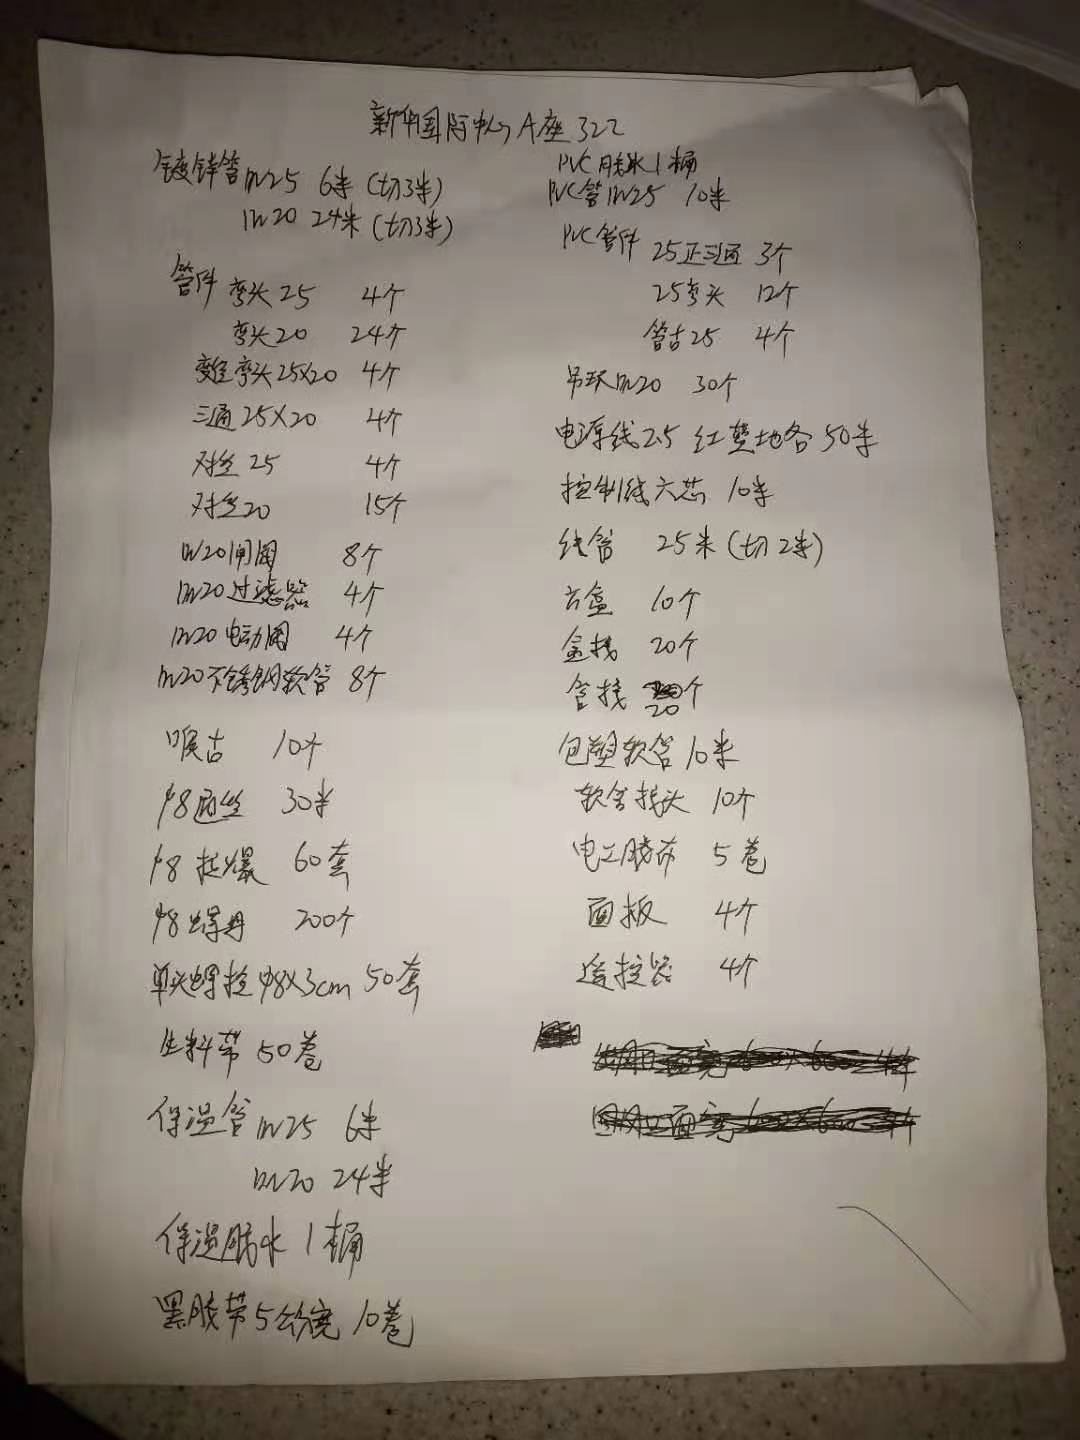 新华国际中心A座322
镀锌管DN25 6米(切3米)
DN20 24米(切3米)
管件 弯头25 4个
弯头20 24个
变径弯头25X20 4个
三通25X20 4个
对丝25 4个
对丝20 15个
DN20闸阀 8个
DN20过滤器 4个
DN20电动阀 4个
DN20不锈钢软管 8个
喉古 10个
φ8通丝 30米
φ8拉爆 60套
φ8螺母 200个
单头螺栓φ8X3cm 50套
生料带 50卷
保温管DN25 6米
DN20 24米
保温胶水 1桶
黑胶带5公分宽 10卷
PVC胶水1桶
PVC管DN25 10米
PVC管件 25正三通 3个
25弯头 12个
管古25 4个
吊环DN20 30个
电源线2.5 红蓝地各50米
控制线六芯 10米
线管 25米(切2米)
方盒 10个
盒接 20个
管接 20个
包塑软管10米
软管接头 10个
电工胶布 5卷
面板 4个
遥控器 4个